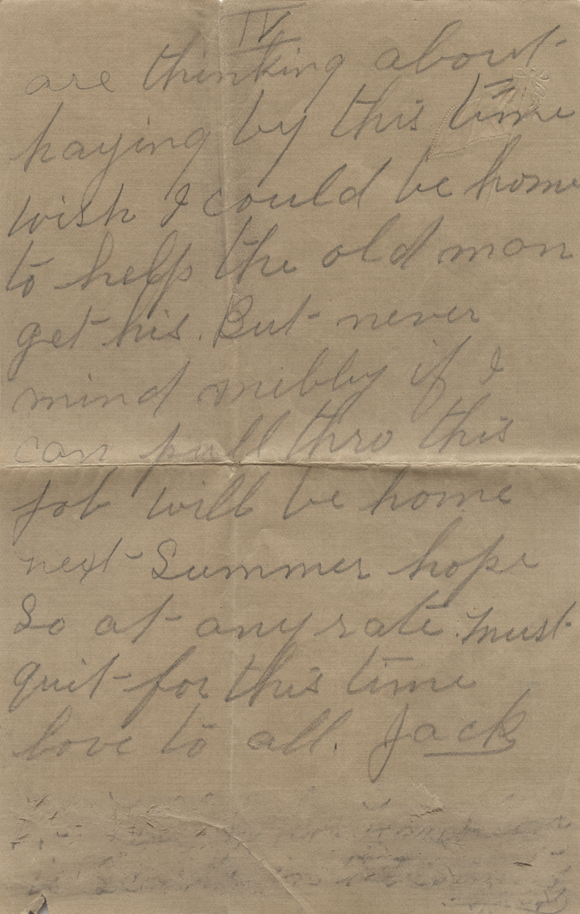 IV
are thinking about
haying by this time
wish I could be home
to help the old man
get his. But never
mind mibby if I
can pull thro this
job will be home
next Summer hope
So at any rate. must
quit for this time
love to all. Jack